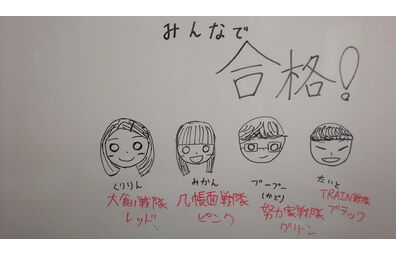 みんなで
合格!
くりりん
大食い戦隊
レッド
みかん
几帳面戦隊
ピンク
プープー
(かど)
努力家戦隊
グリーン
たいと
TRAIN戦隊
ブラック